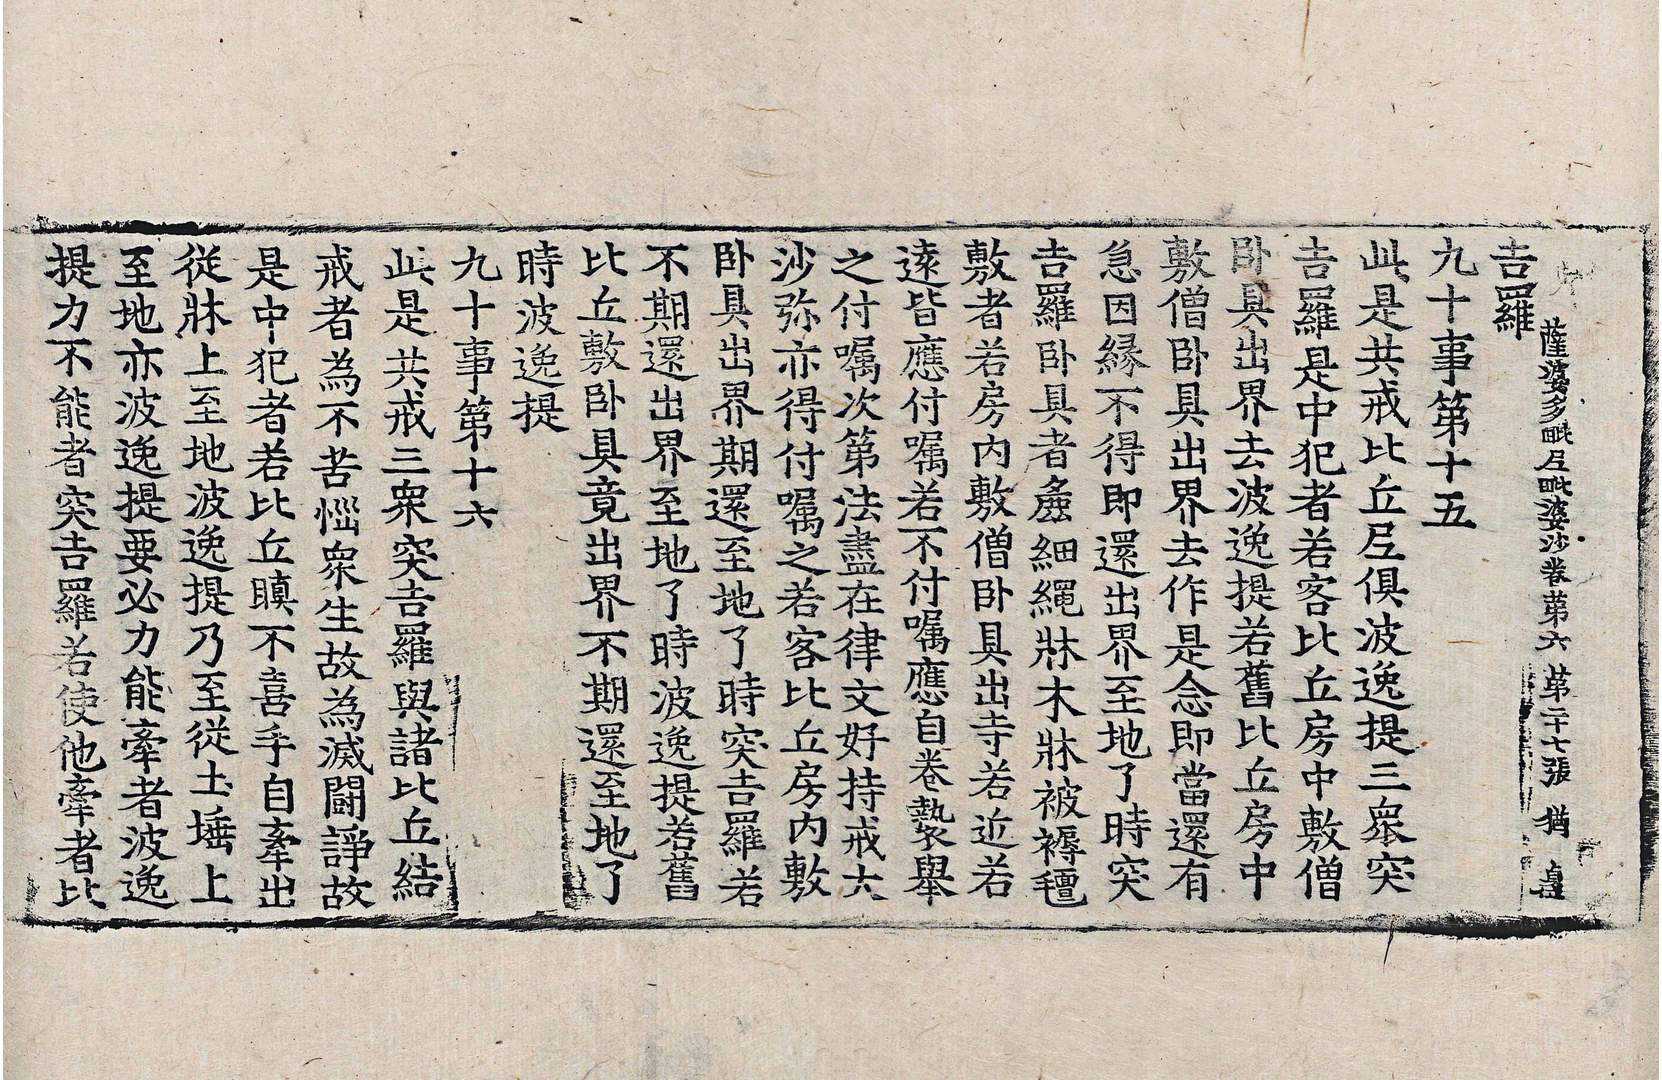 薩婆多毗尼毗婆沙卷第六 第二十七張 猶
吉羅
九十事第十五
此是共戒比丘尼俱波逸提三衆突
吉羅是中犯者若客比丘房中敷僧
卧具出界去波逸提若舊比丘房中
敷僧卧具出界去作是念即當還有
急因緣不得即還出界至地了時突
吉羅卧具者麁細繩牀木牀被褥氊
敷者若房内敷僧卧具出寺若近若
遠皆應付囑若不付囑應自卷褺舉
之付囑次第法盡在律文好持戒大
沙弥亦得付囑之若客比丘房内敷
卧具出界期還至地了時突吉羅若
不期還出界至地了時波逸提若舊
比丘敷卧具竟出界不期還至地了
時波逸提
九十事第十六
此是共戒三衆突吉羅與諸比丘結
戒者為不苦惱衆生故為滅鬪諍故
是中犯者若比丘瞋不喜手自牽出
從牀上至地波逸提乃至從土埵上
至地亦波逸提要必力能牽者波逸
提力不能者突吉羅若使他牽者比